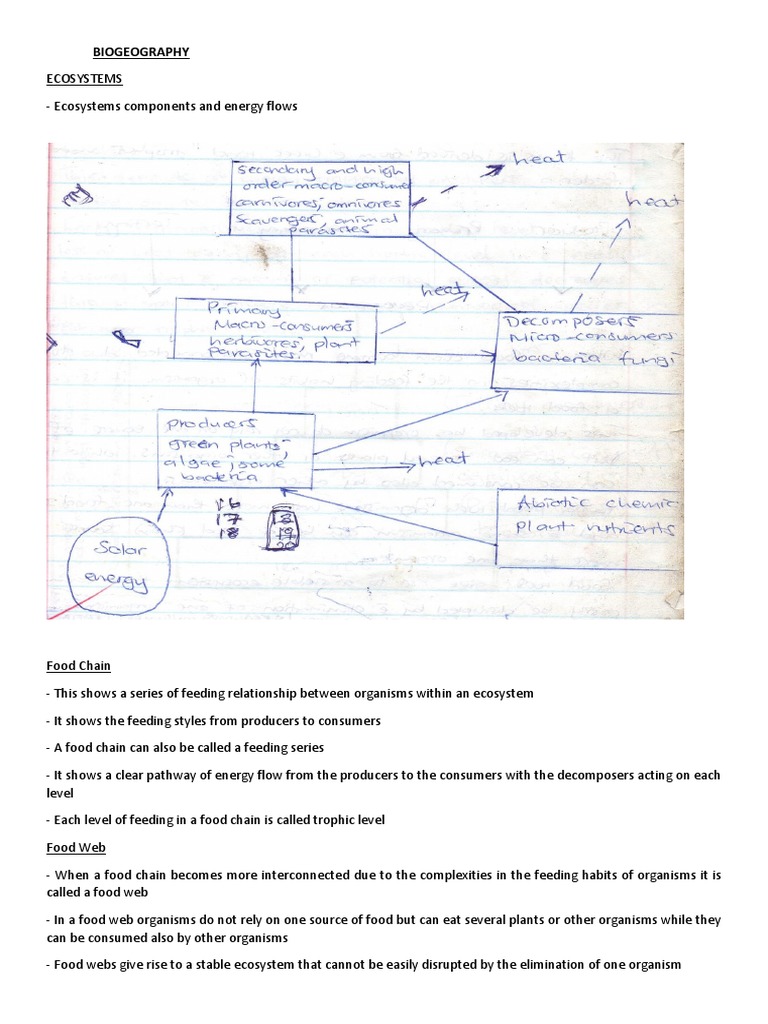 BIOGEOGRAPHY
ECOSYSTEMS
- Ecosystems components and energy flows
heat
Secondary and high
order macro-consume
carnivores; omnivores
Scavengers, animal
parasites
heat
heat
Primary
Macro-consumers
herbivores, plant
Parasites.
Decomposers
Micro-consumers
bacteria fungi
producers
green plants;
algae; some
bacteria
heat
Abiotic chemic
Plant nutrients
16
17
18
18
19
20
Solar
energy
Food Chain
- This shows a series of feeding relationship between organisms within an ecosystem
- It shows the feeding styles from producers to consumers
- A food chain can also be called a feeding series
- It shows a clear pathway of energy flow from the producers to the consumers with the decomposers acting on each
level
- Each level of feeding in a food chain is called trophic level
Food Web
- When a food chain becomes more interconnected due to the complexities in the feeding habits of organisms it is
called a food web
- In a food web organisms do not rely on one source of food but can eat several plants or other organisms while they
can be consumed also by other organisms
- Food webs give rise to a stable ecosystem that cannot be easily disrupted by the elimination of one organism